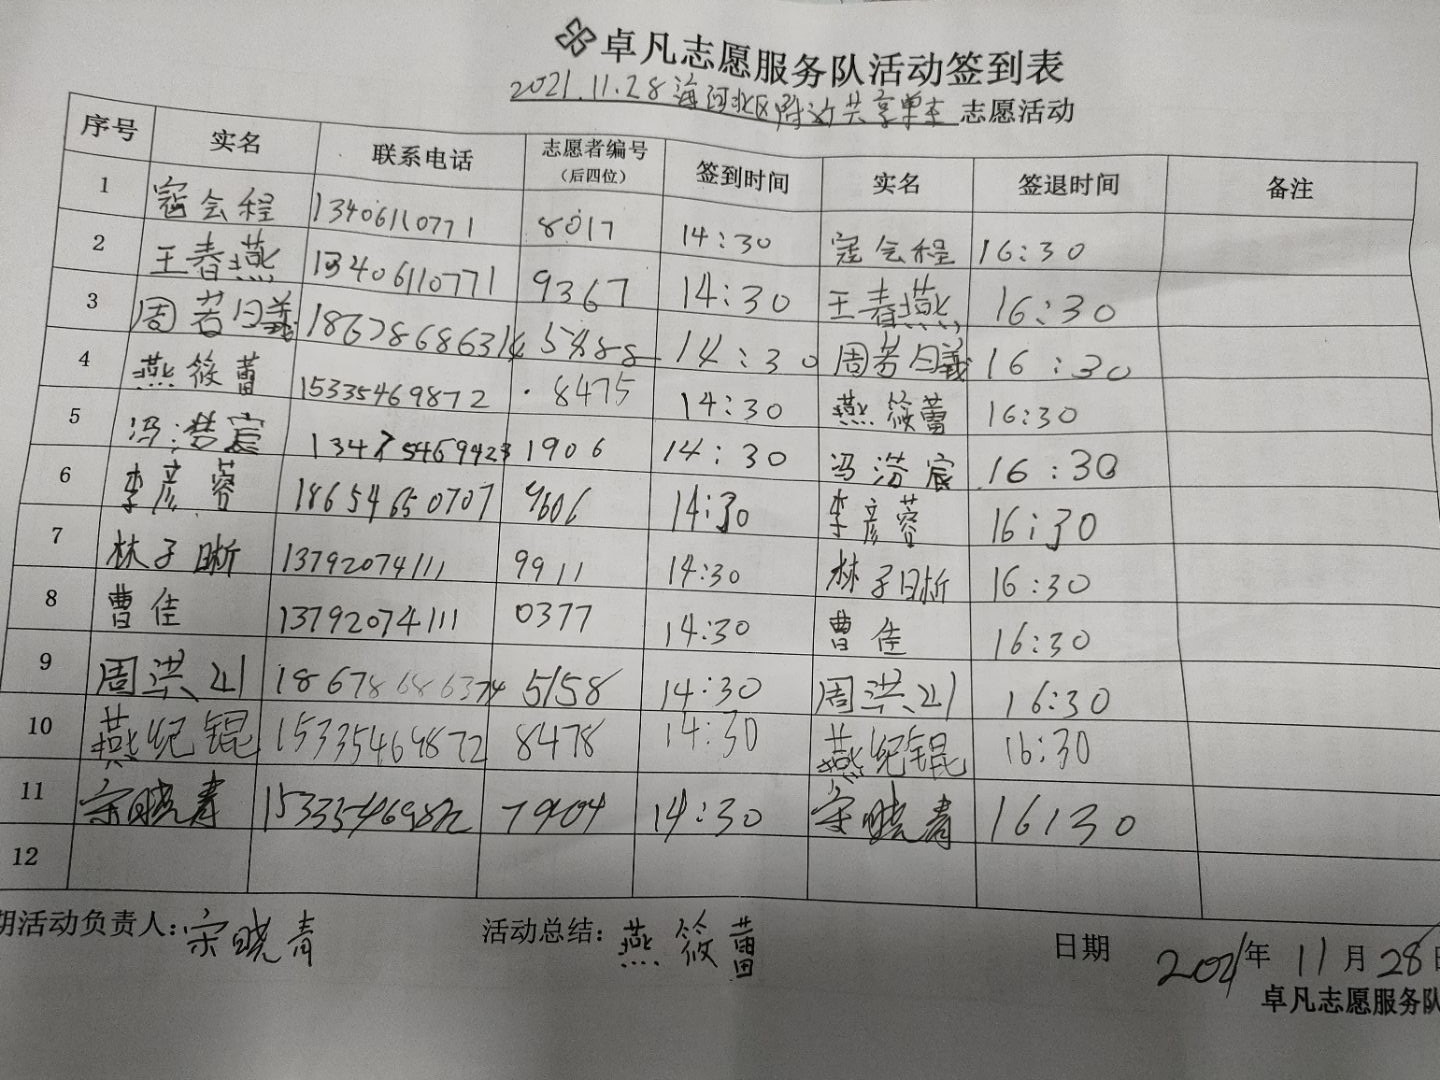 卓凡志愿服务队活动签到表
2021.11.28海河北区附近共享单车 志愿活动
序号 实名 联系电话 志愿者编号（后四位） 签到时间 实名 签退时间 备注
1 寇会程 13406110771 8017 14:30 寇会程 16:30
2 王春燕 13406110771 9367 14:30 王春燕 16:30
3 周若曦 18678686374 5488 14:30 周若曦 16:30
4 燕筱蕾 15335469872 8475 14:30 燕筱蕾 16:30
5 冯浩宸 13475469423 1906 14:30 冯浩宸 16:30
6 李彦蓉 18654650707 9606 14:30 李彦蓉 16:30
7 林子晰 13792074111 9911 14:30 林子晰 16:30
8 曹佳 13792074111 0377 14:30 曹佳 16:30
9 周洪 18678686374 5158 14:30 周洪 16:30
10 燕纪锟 15335469872 8478 14:30 燕纪锟 16:30
11 宋晓青 15335469872 7904 14:30 宋晓青 16:30
12
期活动负责人：宋晓青 活动总结：燕筱蕾 日期 2021年11月28日
卓凡志愿服务队